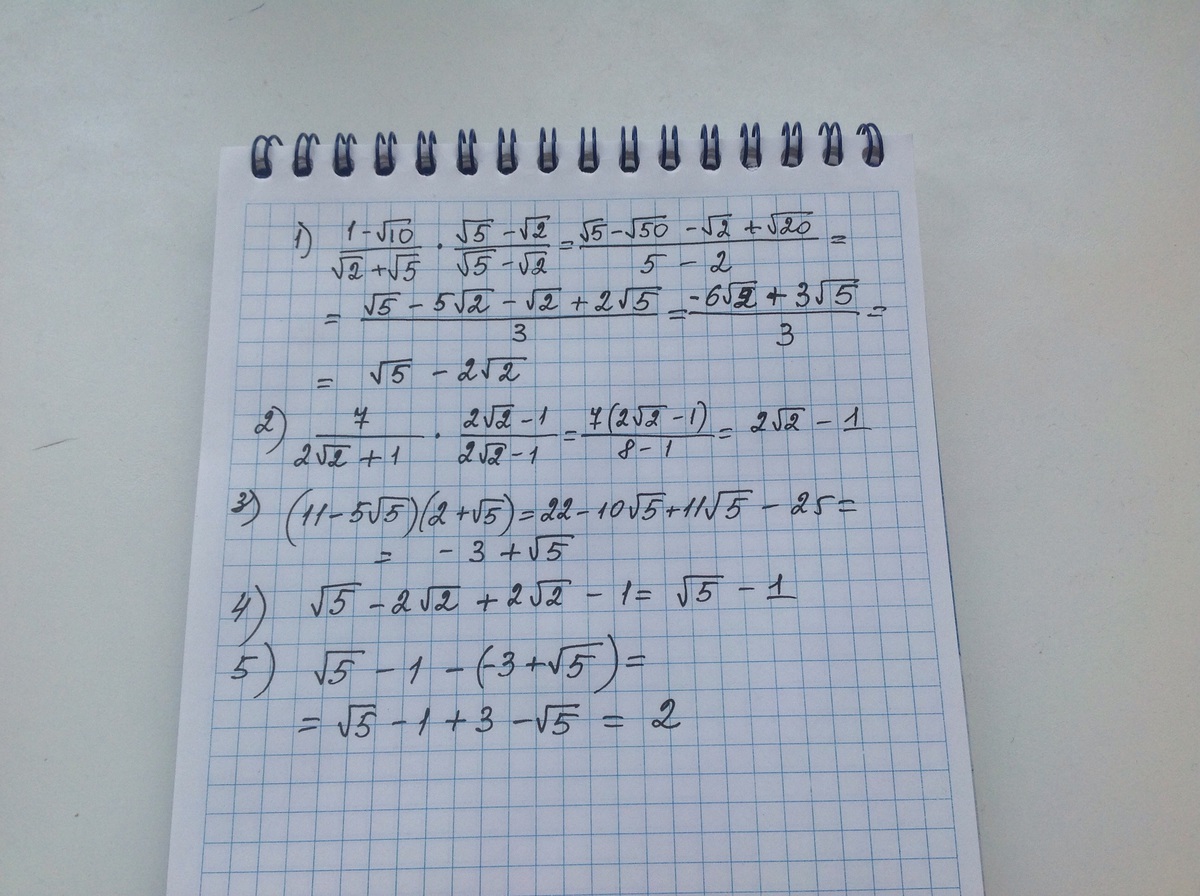 1) (1-√10)/(√2+√5) · (√5-√2)/(√5-√2) = (√5-√50-√2+√20)/(5-2) =
= (√5-5√2-√2+2√5)/3 = (-6√2+3√5)/3 =
= √5-2√2
2) 7/(2√2+1) · (2√2-1)/(2√2-1) = 7(2√2-1)/(8-1) = 2√2-1
3) (11-5√5)(2+√5)=22-10√5+11√5-25=
= -3+√5
4) √5-2√2+2√2-1=√5-1
5) √5-1-(-3+√5)=
=√5-1+3-√5=2